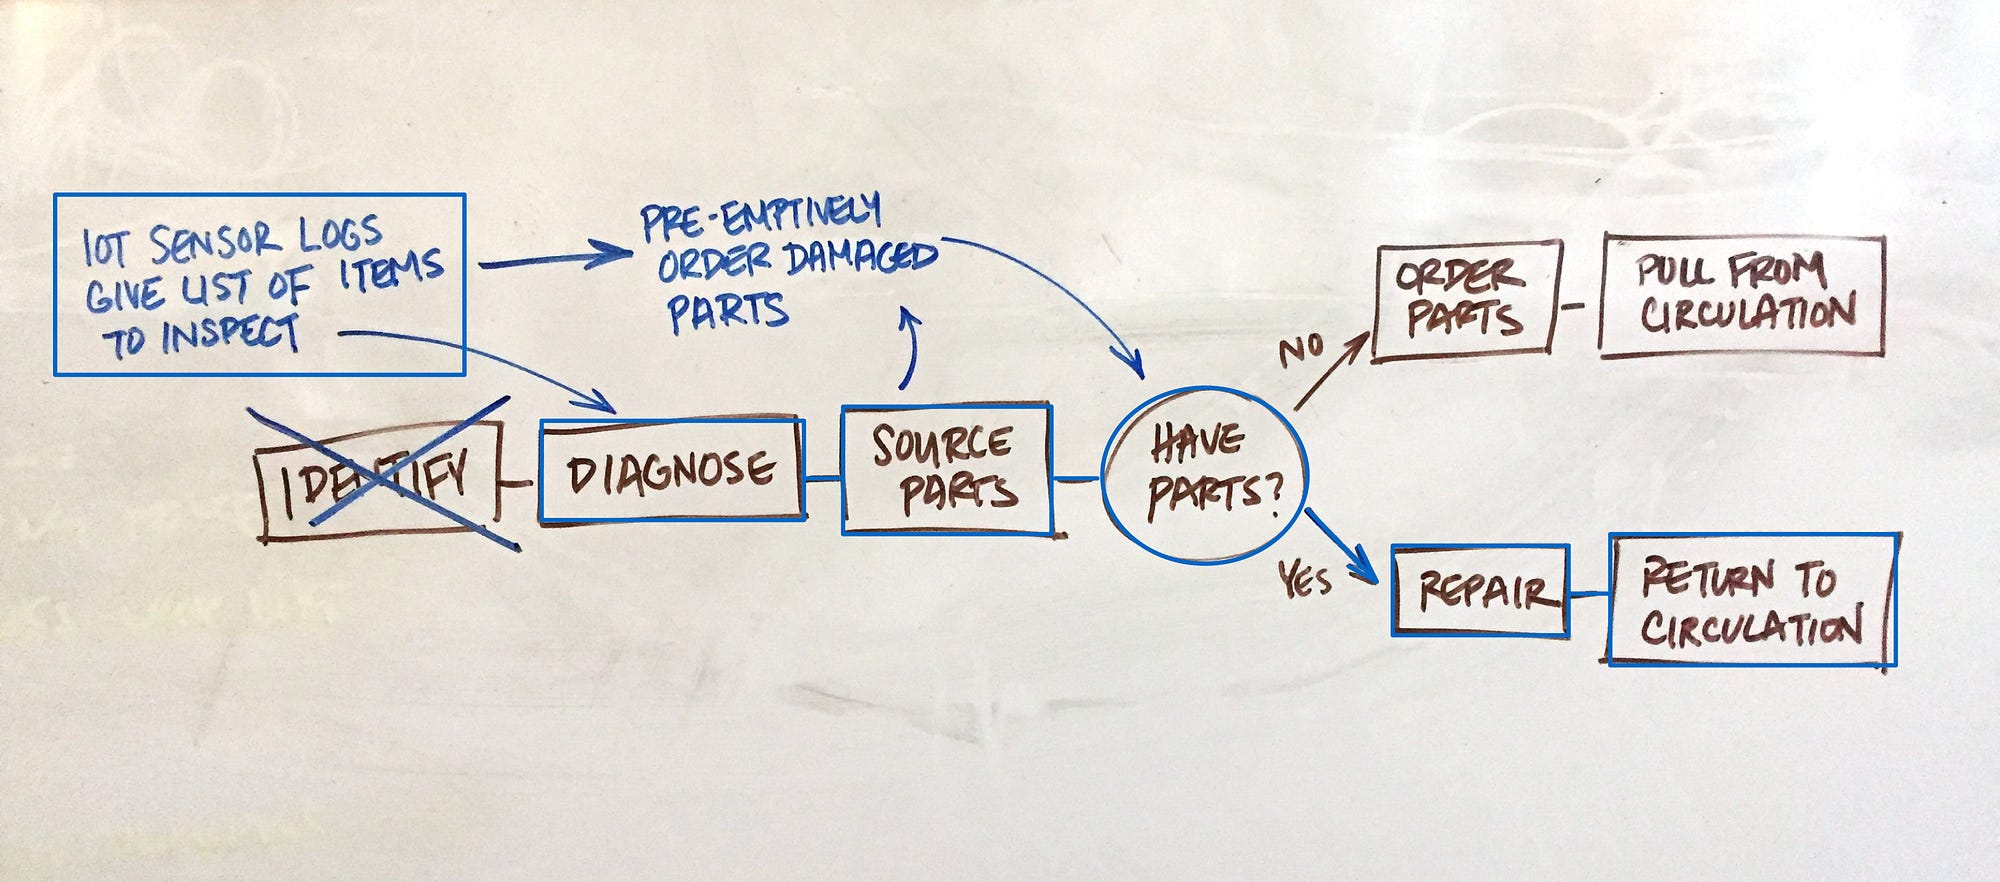 IOT SENSOR LOGS
GIVE LIST OF ITEMS
TO INSPECT
PRE-EMPTIVELY
ORDER DAMAGED
PARTS
IDENTIFY
DIAGNOSE
SOURCE
PARTS
HAVE
PARTS?
NO
ORDER
PARTS
PULL FROM
CIRCULATION
YES
REPAIR
RETURN TO
CIRCULATION